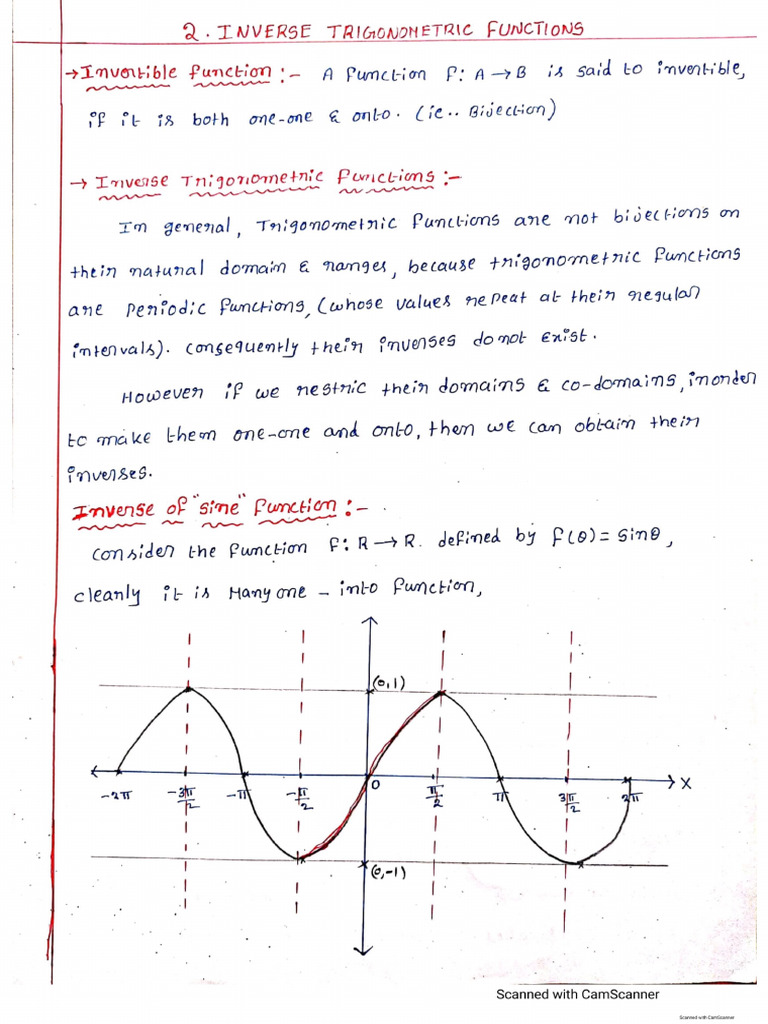 2. INVERSE TRIGONOMETRIC FUNCTIONS
→ Invertible function :- A function f: A → B is said to invertible,
if it is both one-one & onto. (ie.. Bijection)
→ Inverse Trigonometric functions :-
In general, Trigonometric functions are not bijections on
their natural domain & ranges, because trigonometric functions
are periodic functions, (whose values repeat at their regular
intervals). consequently their inverses do not exist.
However if we restric their domains & co-domains, inorder
to make them one-one and onto, then we can obtain their
inverses.
Inverse of "sine" function :-
Consider the function f: R → R. defined by f(θ) = sinθ,
clearly it is Many one - into function,
(0,1)
-2π -3π/2 -π -π/2 0 π/2 π 3π/2 2π X
(0,-1)
Scanned with CamScanner
Scanned with CamScanner